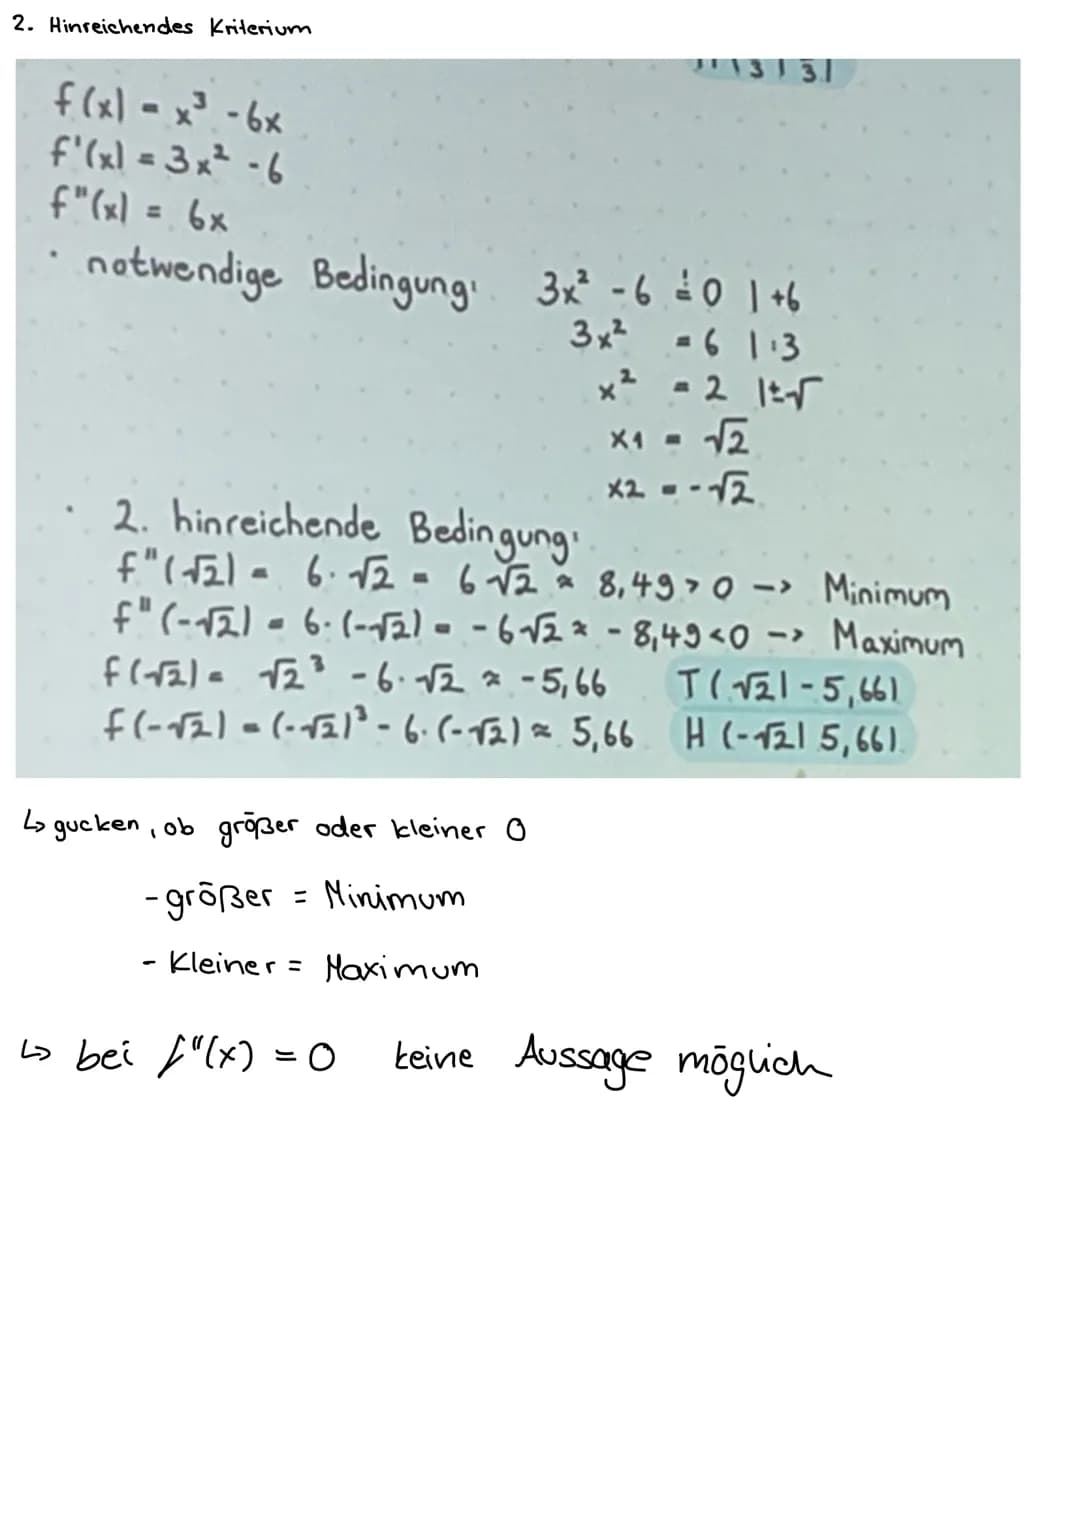 2. Hinreichendes Kriterium
f(x) = x³ - 6x
f'(x) = 3x² - 6
f"(x) = 6x
· notwendige Bedingung: 3x² - 6 != 0 | +6
3x² = 6 | :3
x² = 2 | ±√
x1 = √2
x2 = -√2
· 2. hinreichende Bedingung:
f"(√2) = 6·√2 = 6√2 ≈ 8,49 > 0 -> Minimum
f"(-√2) = 6·(-√2) = -6√2 ≈ -8,49 < 0 -> Maximum
f(√2) = √2³ - 6·√2 ≈ -5,66 T(√2|-5,66)
f(-√2) = (-√2)³ - 6·(-√2) ≈ 5,66 H(-√2|5,66)
↳ gucken, ob größer oder kleiner 0
- größer = Minimum
- Kleiner = Maximum
↳ bei f"(x) = 0 keine Aussage möglich